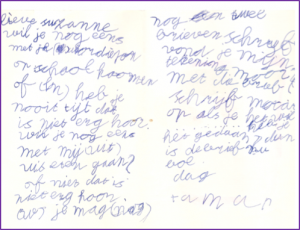 lieve suzanne
wil je nog eens
met je accordejon
op school koomen
of (n) heb je
nooit tijt dat
is niet erg hoor.
wil je nog eens
met mij (uit)
uis eren gaan?
of niet dat is
niet erg hoor.
je mag
nog een twee
brieven schrijf
vond je mijn
tekening mooi
met de brief
schrijf
op als je
hep gedaan dan
is de brief
doei
dag
taman